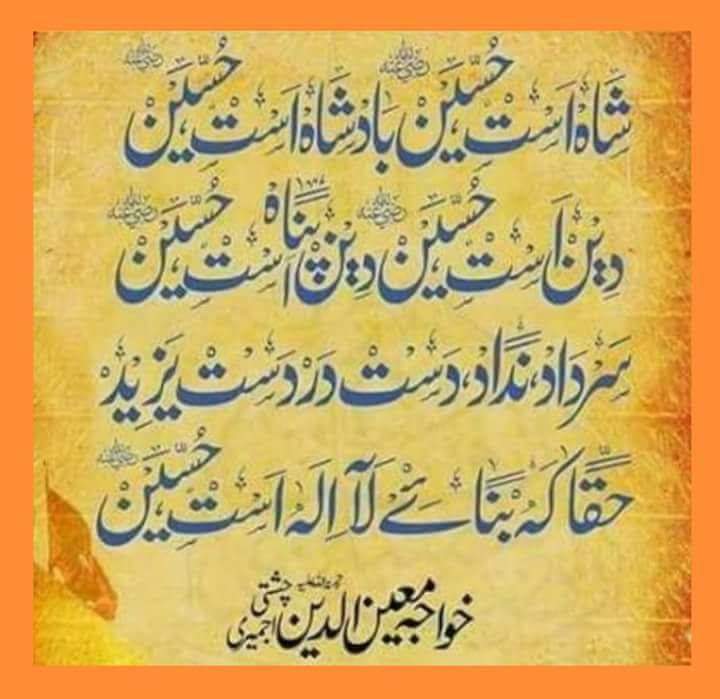 شاہ است حسین بادشاہ است حسین
دین است حسین دین پناہ است حسین
سرداد، نداد، دست در دست یزید
حقا کہ بنائے لآ الہ است حسین
خواجہ معین الدین چشتی اجمیری